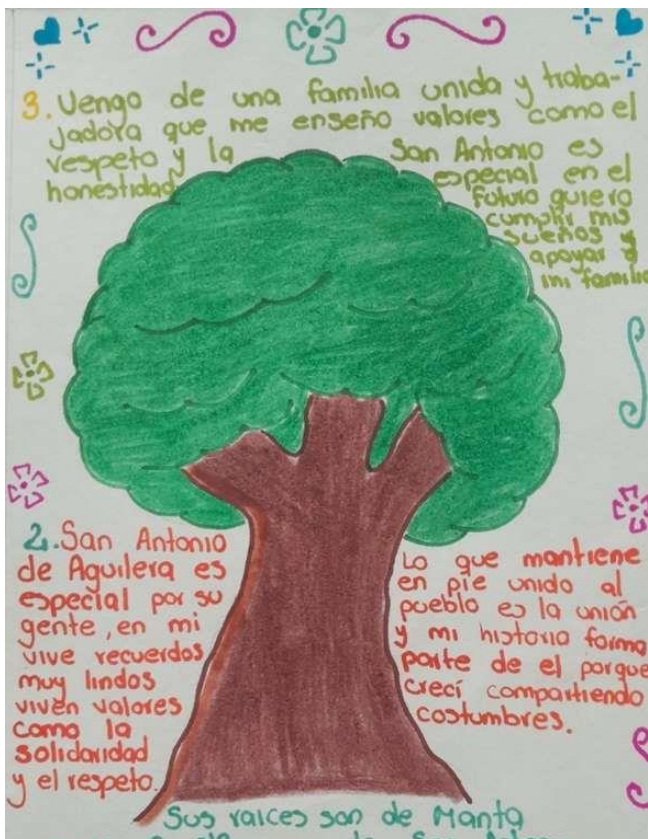 3. Vengo de una familia unida y traba-
jadora que me enseño valores como el
respeto y la
honestidad
San Antonio es
especial en el
futuro quiero
cumplir mis
sueños y
apoyar a
mi familia
2. San Antonio
de Aguilera es
especial por su
gente, en mi
vive recuerdos
muy lindos
viven valores
como la
solidaridad
y el respeto.
Lo que mantiene
en pie unido al
pueblo es la unión
y mi historia forma
parte de el porque
crecí compartiendo
costumbres.
Sus raices son de Manta